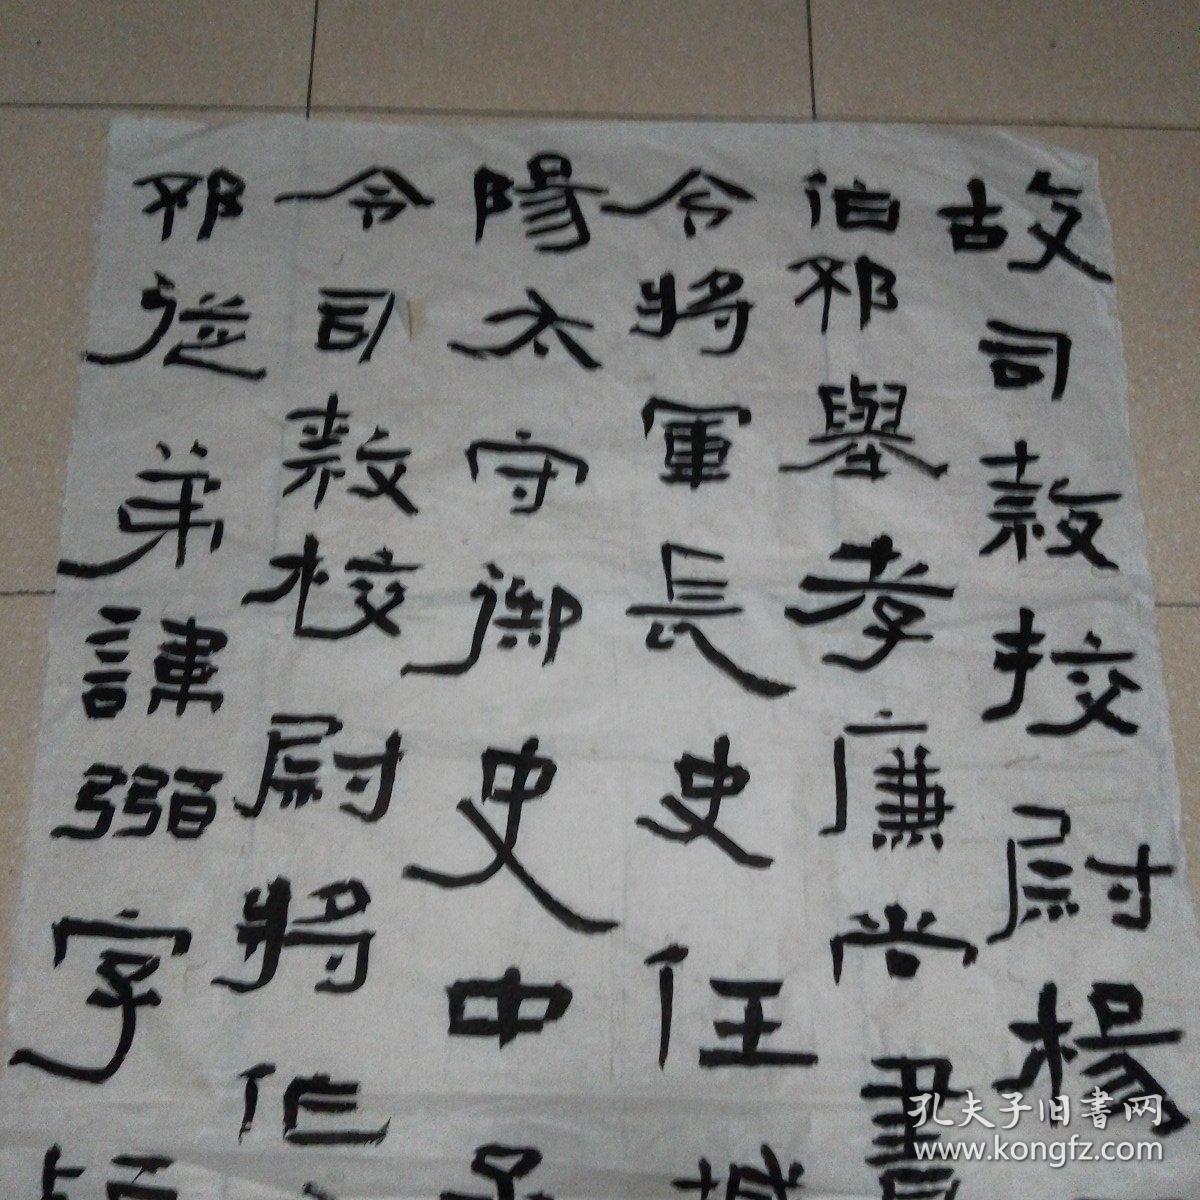 故司隸校尉楊
伯邳舉孝廉尚書
令將軍長史任城
陽太守御史中
令司隸校尉將作
邳從弟諱弼字
孔夫子旧书网
www.kongfz.com